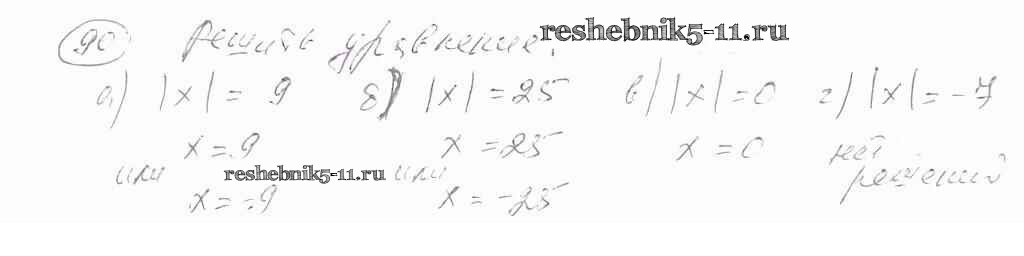 90 Решить уравнение. reshebnik5-11.ru
а) |x| = 9 б) |x| = 25 в) |x| = 0 г) |x| = -7
x = 9 x = 25 x = 0 нет
или reshebnik5-11.ru или решений
x = -9 x = -25